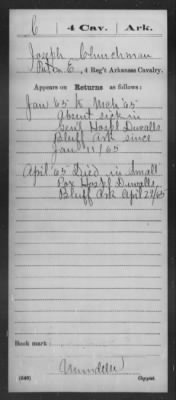 C 4 Cav. Ark.
Joseph Churchman
Pvt Co. E, 4 Reg't Arkansas Cavalry.
Appears on Returns as follows:
Jan '65 to Mch '65
Absent sick in
Genl Hospl Duvalls
Bluff Ark since
Jan 11/65
April '65 Died in Small
Pox Hospl Duvalls
Bluff Ark April 29/65
Book mark:
(646) Copyist.